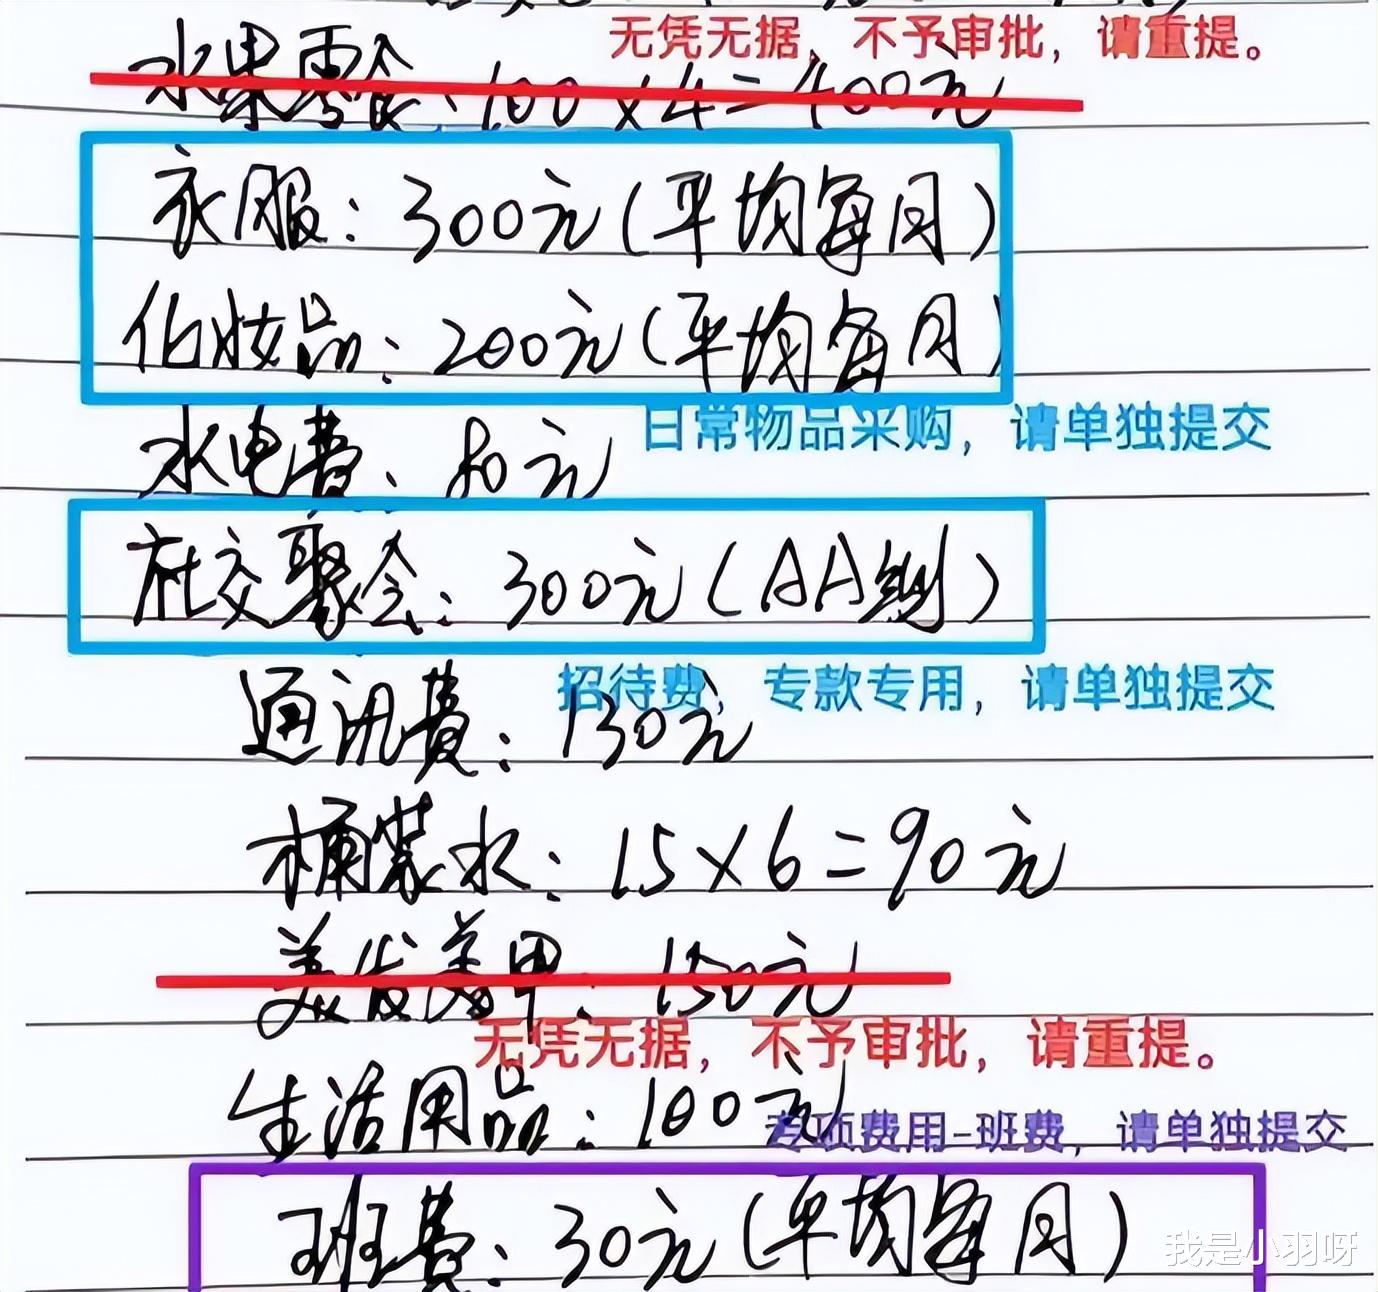 无凭无据，不予审批，请重提。
水果零食：100×4=400元
衣服：300元(平均每月)
化妆品：200元(平均每月)
日常物品采购，请单独提交
水电费：80元
社交聚会：300元(AA制)
招待费，专款专用，请单独提交
通讯费：130元
桶装水：15×6=90元
美发美甲：150元
无凭无据，不予审批，请重提。
生活用品：100元
专项费用-班费，请单独提交
班费：30元(平均每月)
我是小羽呀